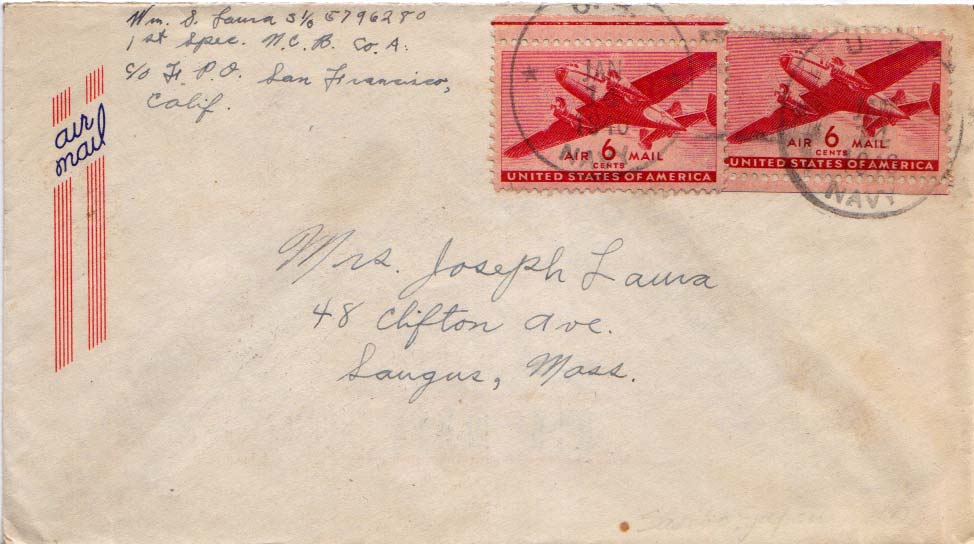 Wm. S. Laura S 1/c 5796280
1st Spec. N.C.B. Co. A.
c/o F. P.O. San Francisco,
Calif.
air
mail
U.S.
JAN
NAVY
AIR 6 MAIL
CENTS
UNITED STATES OF AMERICA
U
NAVY
AIR 6 MAIL
CENTS
UNITED STATES OF AMERICA
Mrs. Joseph Laura
48 Clifton Ave.
Saugus, Mass.